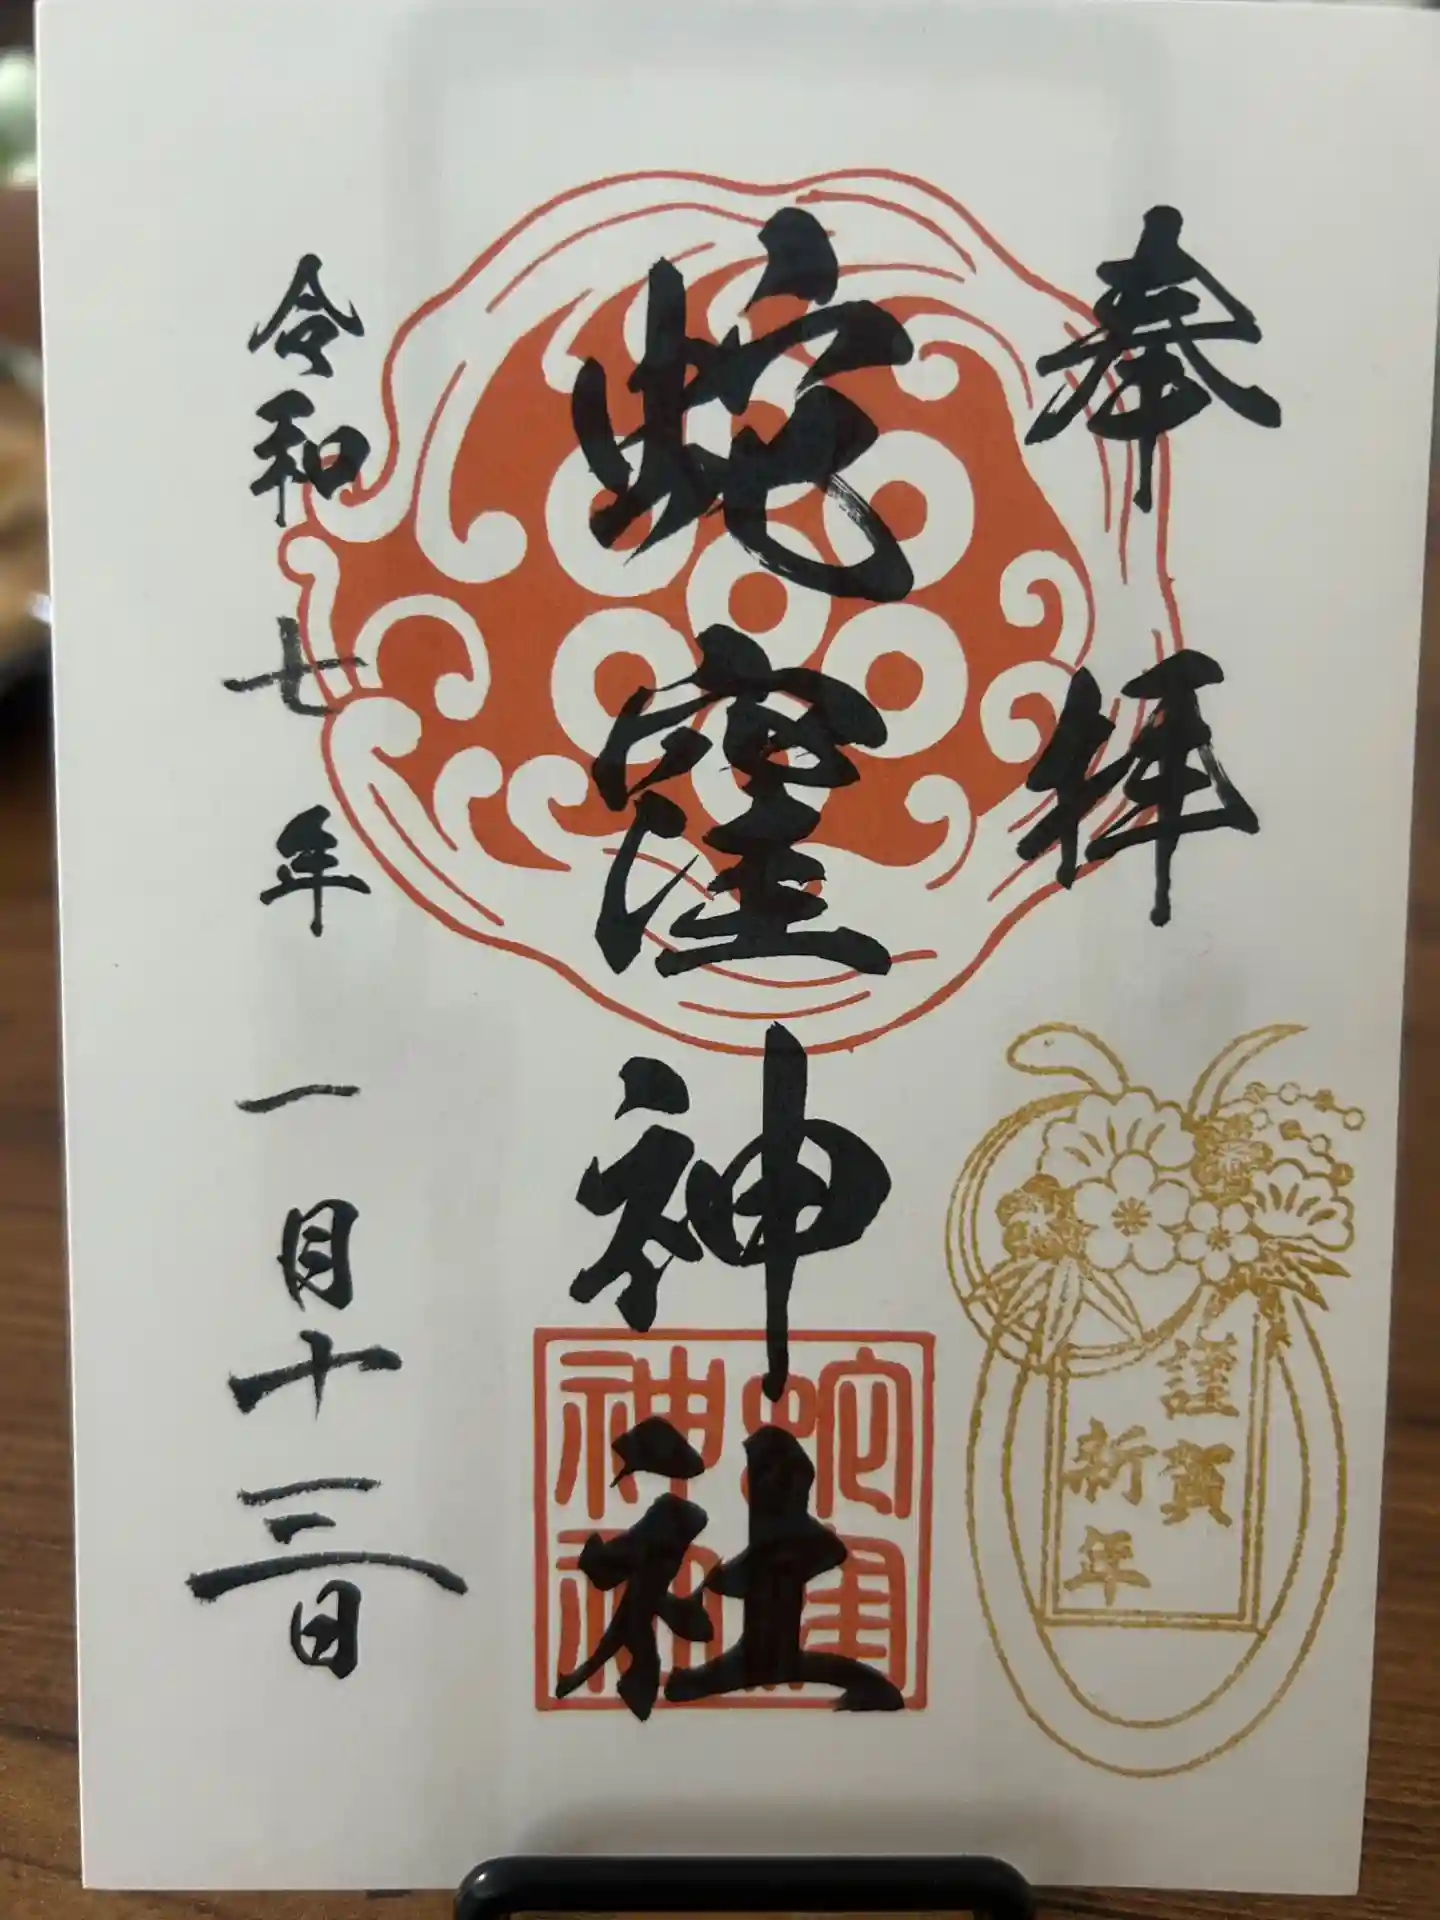 奉拝
蛇窪神社
令和七年一月十三日
蛇窪
神社
謹賀
新年